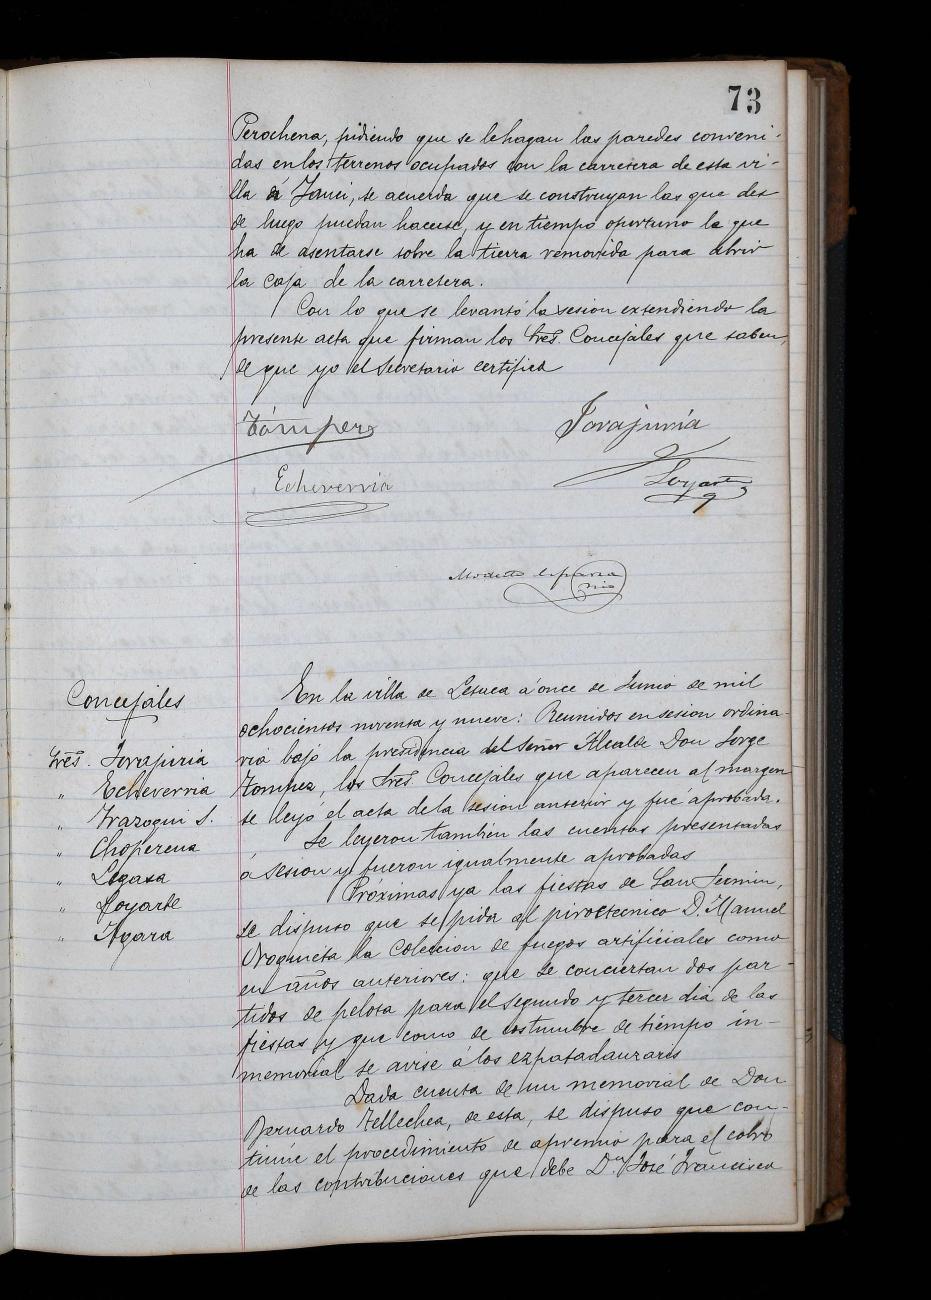 73
Perochena, pidiendo que se le hagan las paredes conveni-
das en los terrenos ocupados con la carretera de esta vi-
lla á Janci, se acuerda que se construyan las que des
de luego puedan hacerse, y en tiempo oportuno la que
ha de asentarse sobre la tierra removida para abrir
la caja de la carretera.
Con lo que se levantó la sesion extendiendo la
presente acta que firman los Sres. Concejales que saben,
de que yo el Secretario certifico
Tómpez
Jorajuria
Echeverria
Loyarte
Modesto
En la villa de Lesaca á once de Junio de mil
ochocientos noventa y nueve: Reunidos en sesion ordina-
ria bajo la presidencia del Señor Alcalde Don Jorge
Tompez, los Sres. Concejales que aparecen al margen
se leyó el acta de la sesion anterior y fué aprobada.
Se leyeron tambien las cuentas presentadas
á sesion y fueron igualmente aprobadas
Próximas ya las fiestas de San Fermin,
se dispuso que se pida al pirotecnico D. Manuel
Oroquieta la coleccion de fuegos artificiales como
en años anteriores: que se conciertan dos par-
tidos de pelota para el segundo y tercer dia de las
fiestas y que como de costumbre de tiempo in-
memorial se avise á los ezpatadauzaris
Dada cuenta de un memorial de Don
Bernardo Tellechea, de esta, se dispuso que con-
tinue el procedimiento de apremio para el cobro
de las contribuciones que debe D.n José Francisco
Concejales
Sres. Jorajuria
" Echeverria
" Irazoqui S.
" Choperena
" Legasa
" Loyarte
" Agara